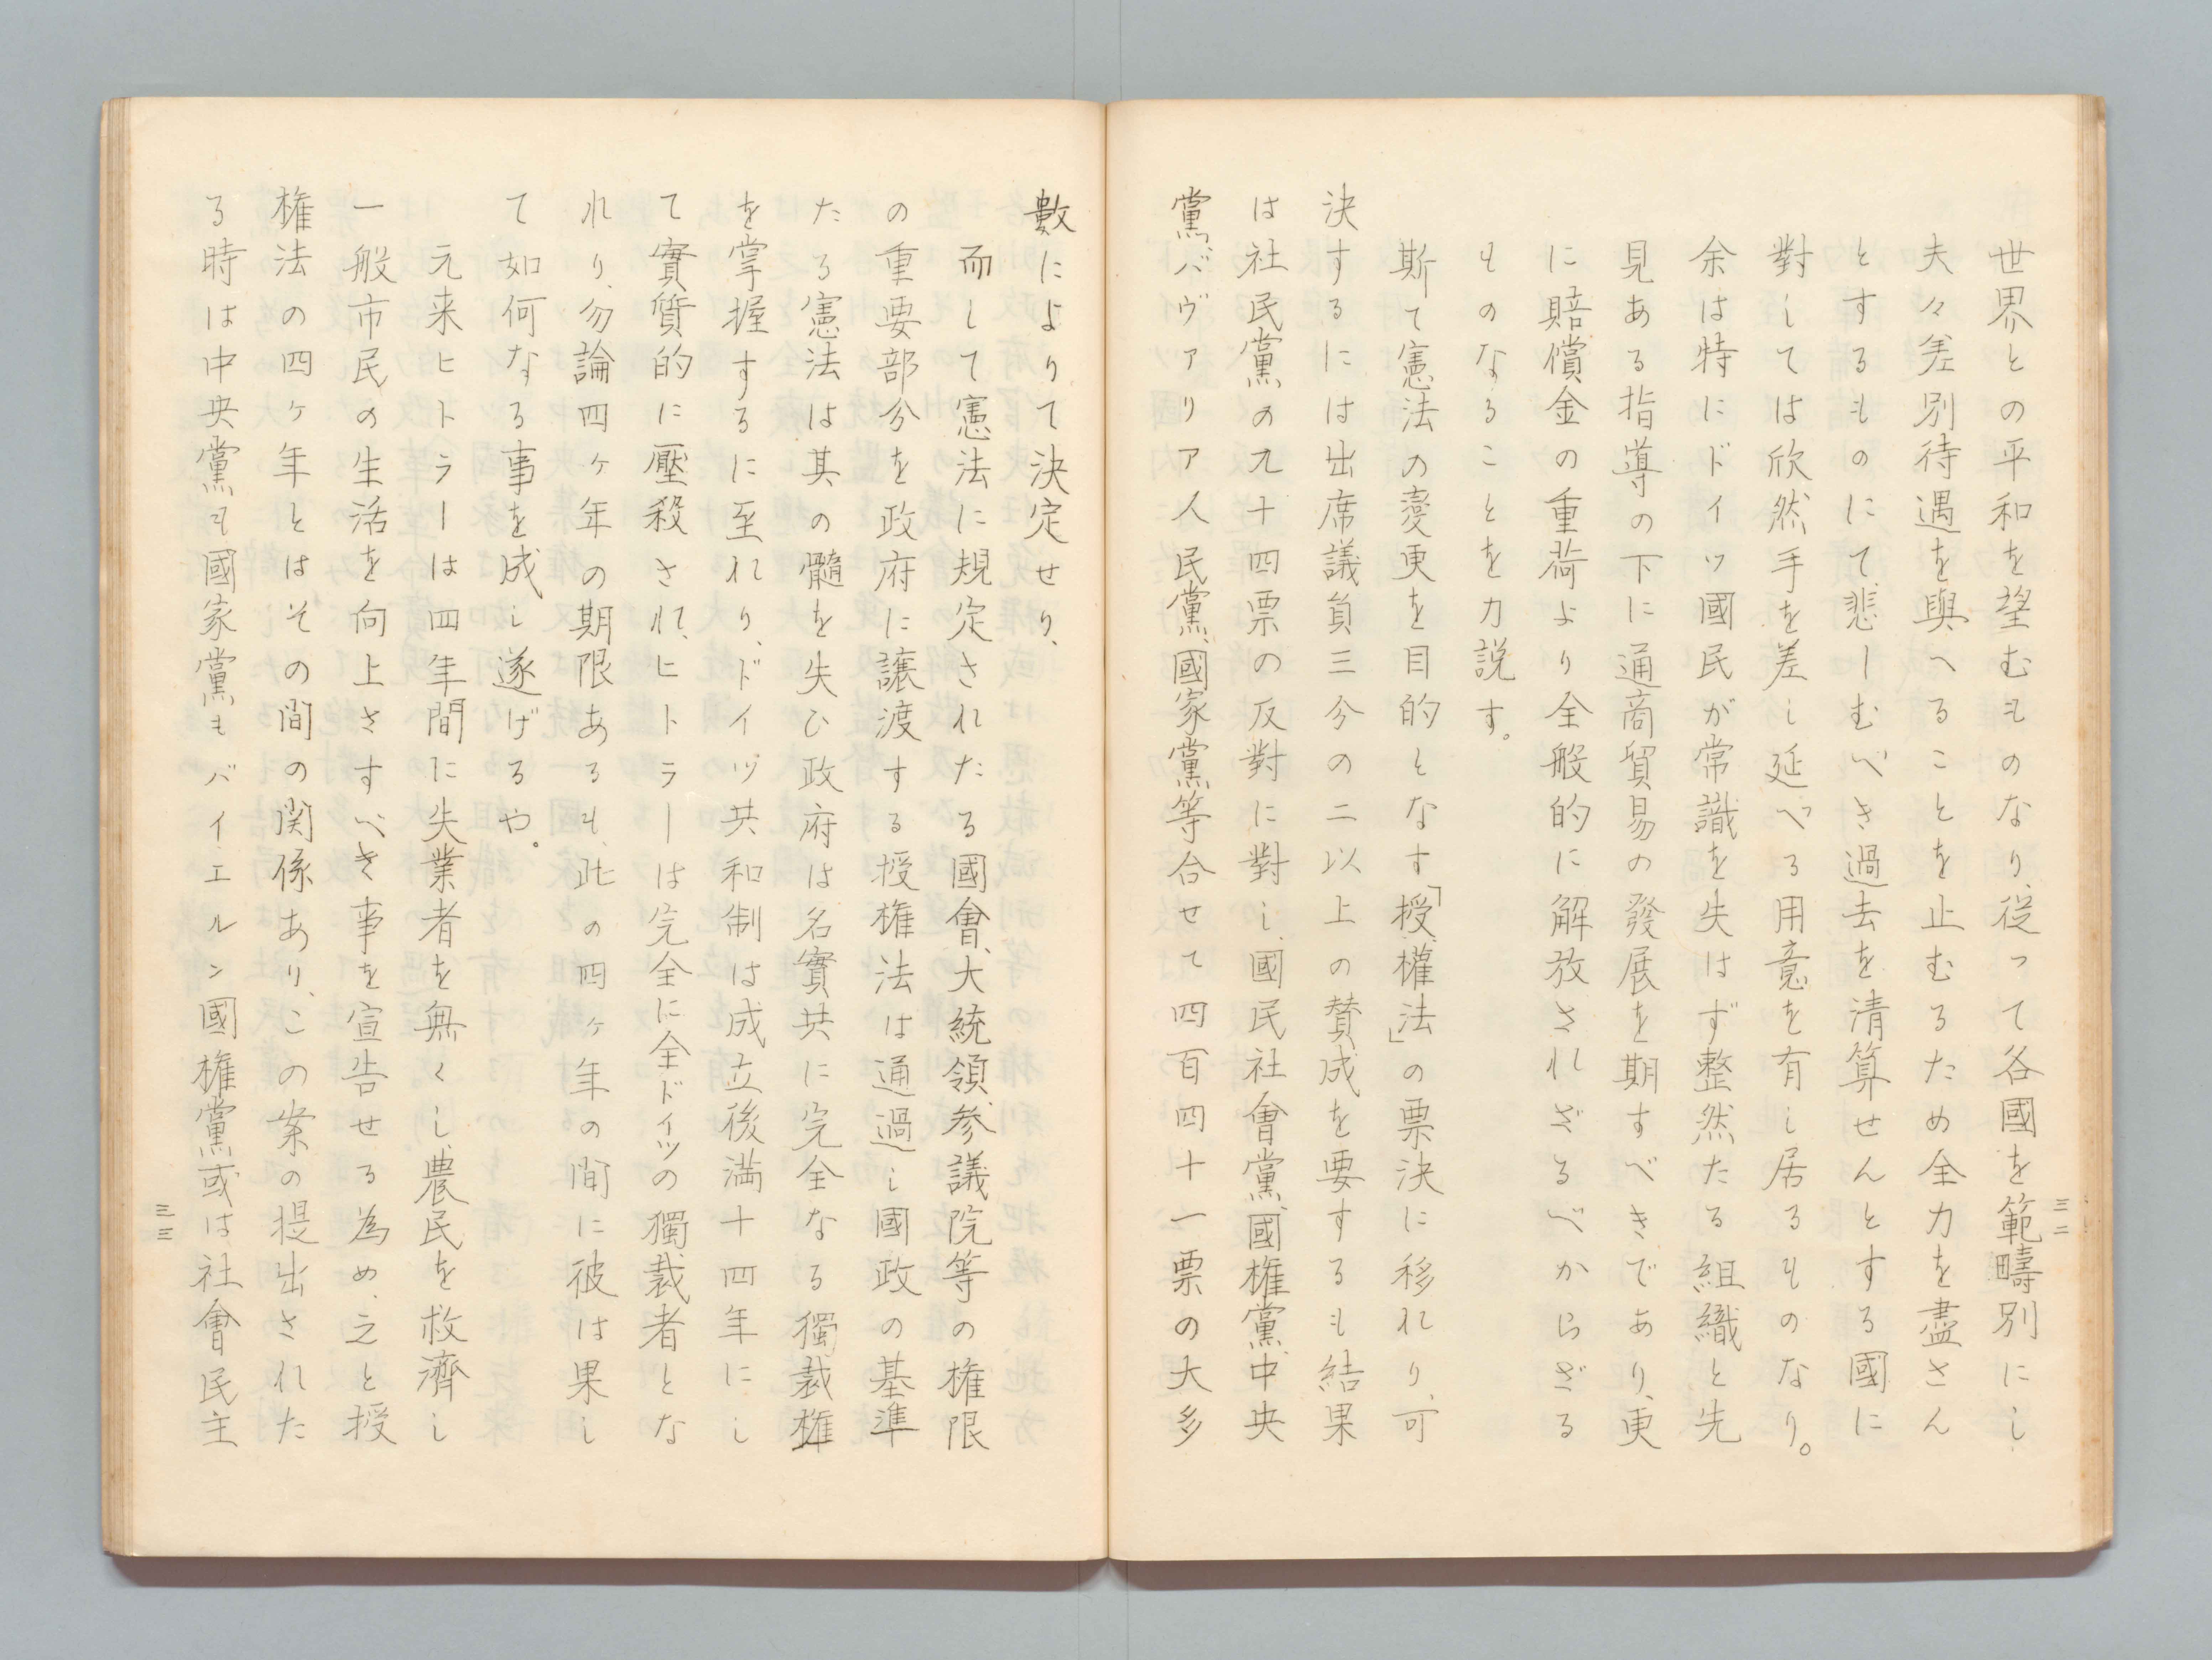 世界との平和を望むものなり、従って各國を範疇別にし
夫々差別待遇を與へることを止むるため全力を盡さん
とするものにて、悲しむべき過去を清算せんとする國に
對しては欣然手を差し延べる用意を有し居るものなり。
余は特にドイツ國民が常識を失はず整然たる組織と先
見ある指導の下に通商貿易の發展を期すべきであり、更
に賠償金の重荷より全般的に解放されざるべからざる
ものなることを力説す。
斯て憲法の変更を目的となす「授權法」の票決に移れり、可
決するには出席議員三分の二以上の賛成を要するも結果
は社民黨の九十四票の反對に對し、國民社會黨、國権黨、中央
黨、バヴァリア人民黨、國家黨等合せて四百四十一票の大多
三二
數によりて決定せり、
而して憲法に規定されたる國會、大統領、参議院等の権限
の重要部分を政府に譲渡する授権法は通過し國政の基準
たる憲法は其の髓を失ひ政府は名實共に完全なる獨裁権
を掌握するに至れり、ドイツ共和制は成立後満十四年にし
て實質的に壓殺され、ヒトラーは完全に全ドイツの獨裁者とな
れり、勿論四ヶ年の期限あるも、此の四ヶ年の間に彼は果し
て如何なる事を成し遂げるや。
元来ヒトラーは四年間に失業者を無くし、農民を救濟し
一般市民の生活を向上さすべき事を宣告せる為め、之と授
権法の四ヶ年とはその間の関係あり、この案の提出された
る時は中央黨も國家黨もバイエルン國権黨或は社會民主
三三